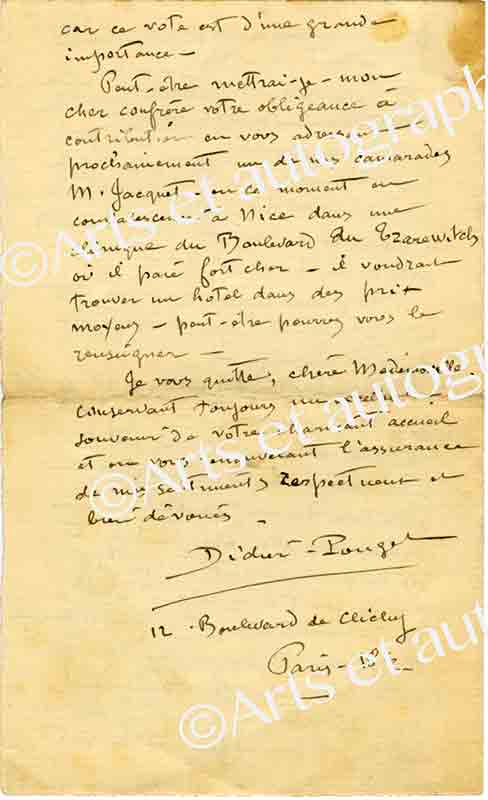 car ce vote est d'une grande
importance —
Peut-être mettrai-je — mon
cher confrère votre obligeance à
contribution en vous adressant
prochainement un de mes camarades
M. Jacquet en ce moment en
convalescence à Nice dans une
clinique du Boulevard du Tzarewitch
où il paie fort cher — il voudrait
trouver un hôtel dans des prix
moyens — peut-être pourrez vous le
renseigner —
Je vous quitte, chère Mademoiselle,
conservant toujours un excellent
souvenir de votre charmant accueil
et en vous renouvelant l'assurance
de mes sentiments respectueux et
bien dévoués
Didier-Pouget
12 Boulevard de Clichy
Paris — 18e
©Arts et autographes
©Arts et autographes
©Arts et autographes